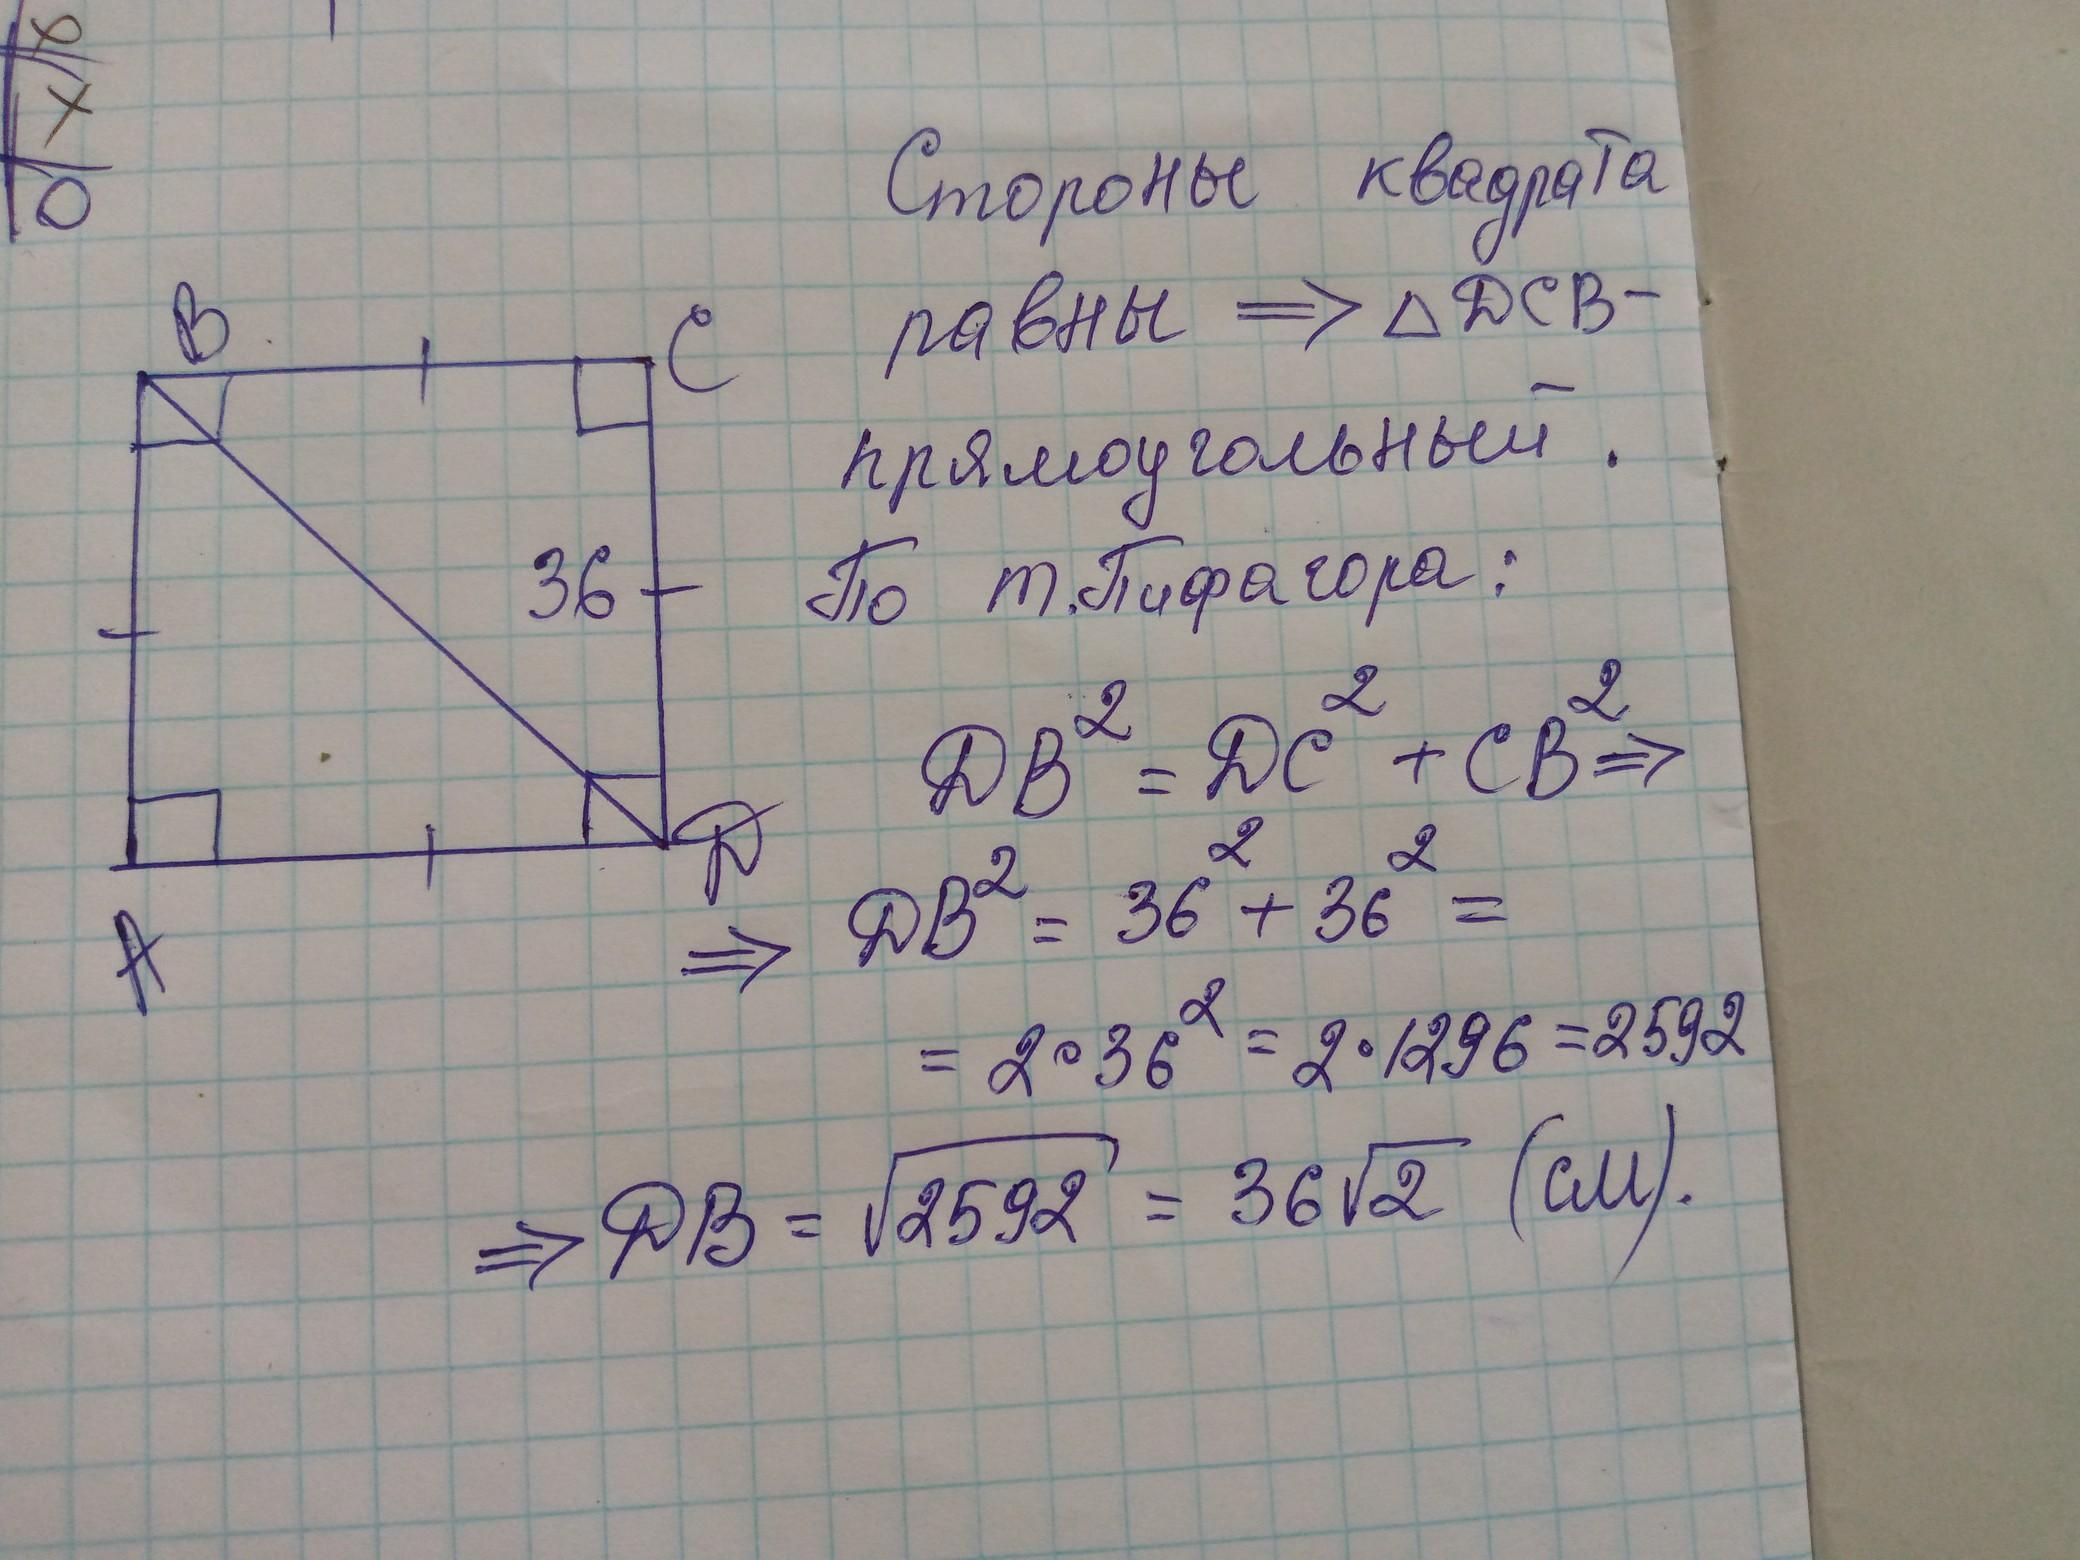 8
X
O
B
C
36
D
A
Стороны квадрата
равны => △ DCB -
прямоугольный.
По т. Пифагора:
DB² = DC² + CB² =>
=> DB² = 36² + 36² =
= 2 · 36² = 2 · 1296 = 2592
=> DB = √2592 = 36√2 (см).